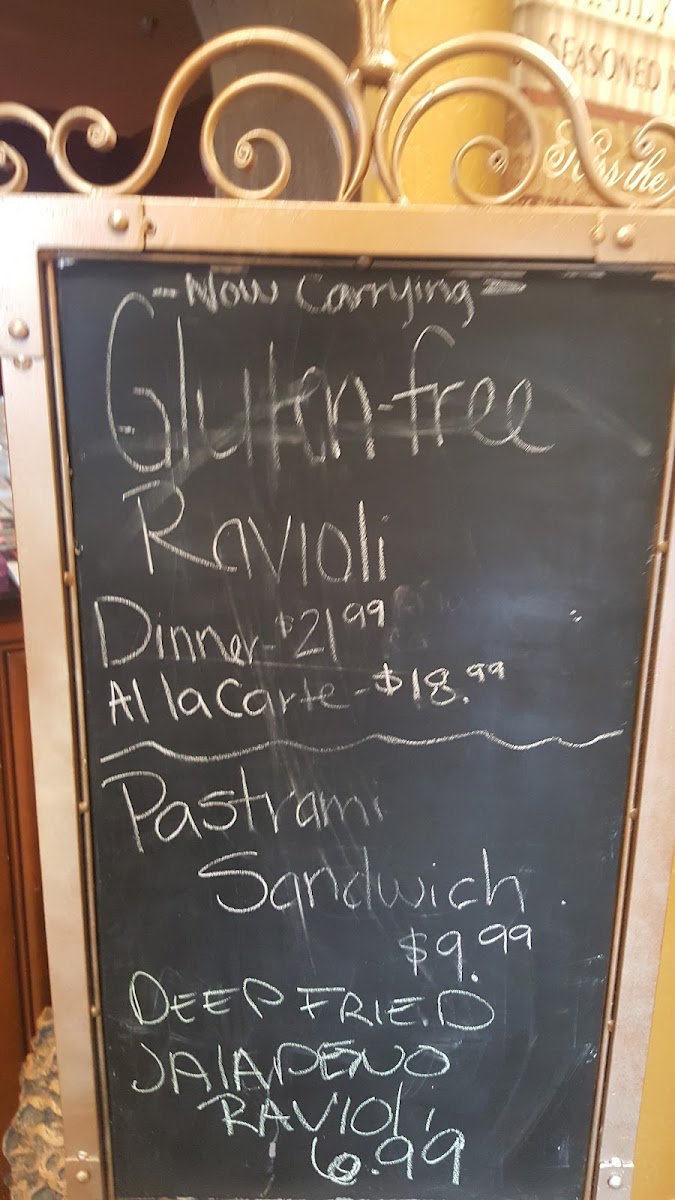 SEASONED
Kiss the
- Now Carrying -
Gluten-free
Ravioli
Dinner - $21.99
Al la Carte - $18.99
Pastrami
Sandwich
$9.99
DEEP FRIED
JALAPENO
RAVIOLI
6.99